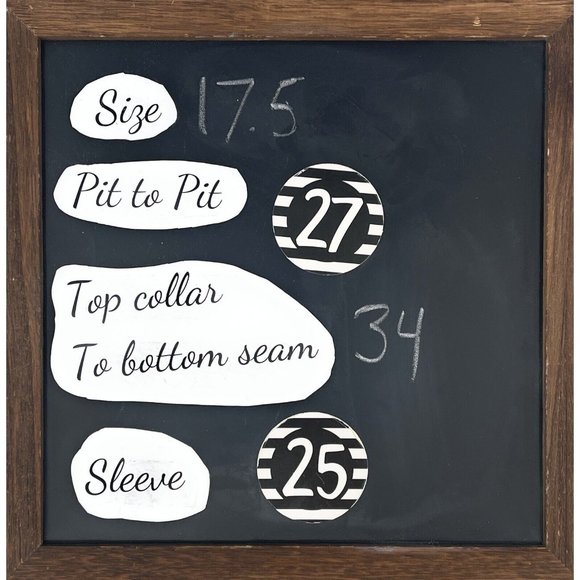 Size 17.5
Pit to Pit 27
Top collar
To bottom seam 34
Sleeve 25